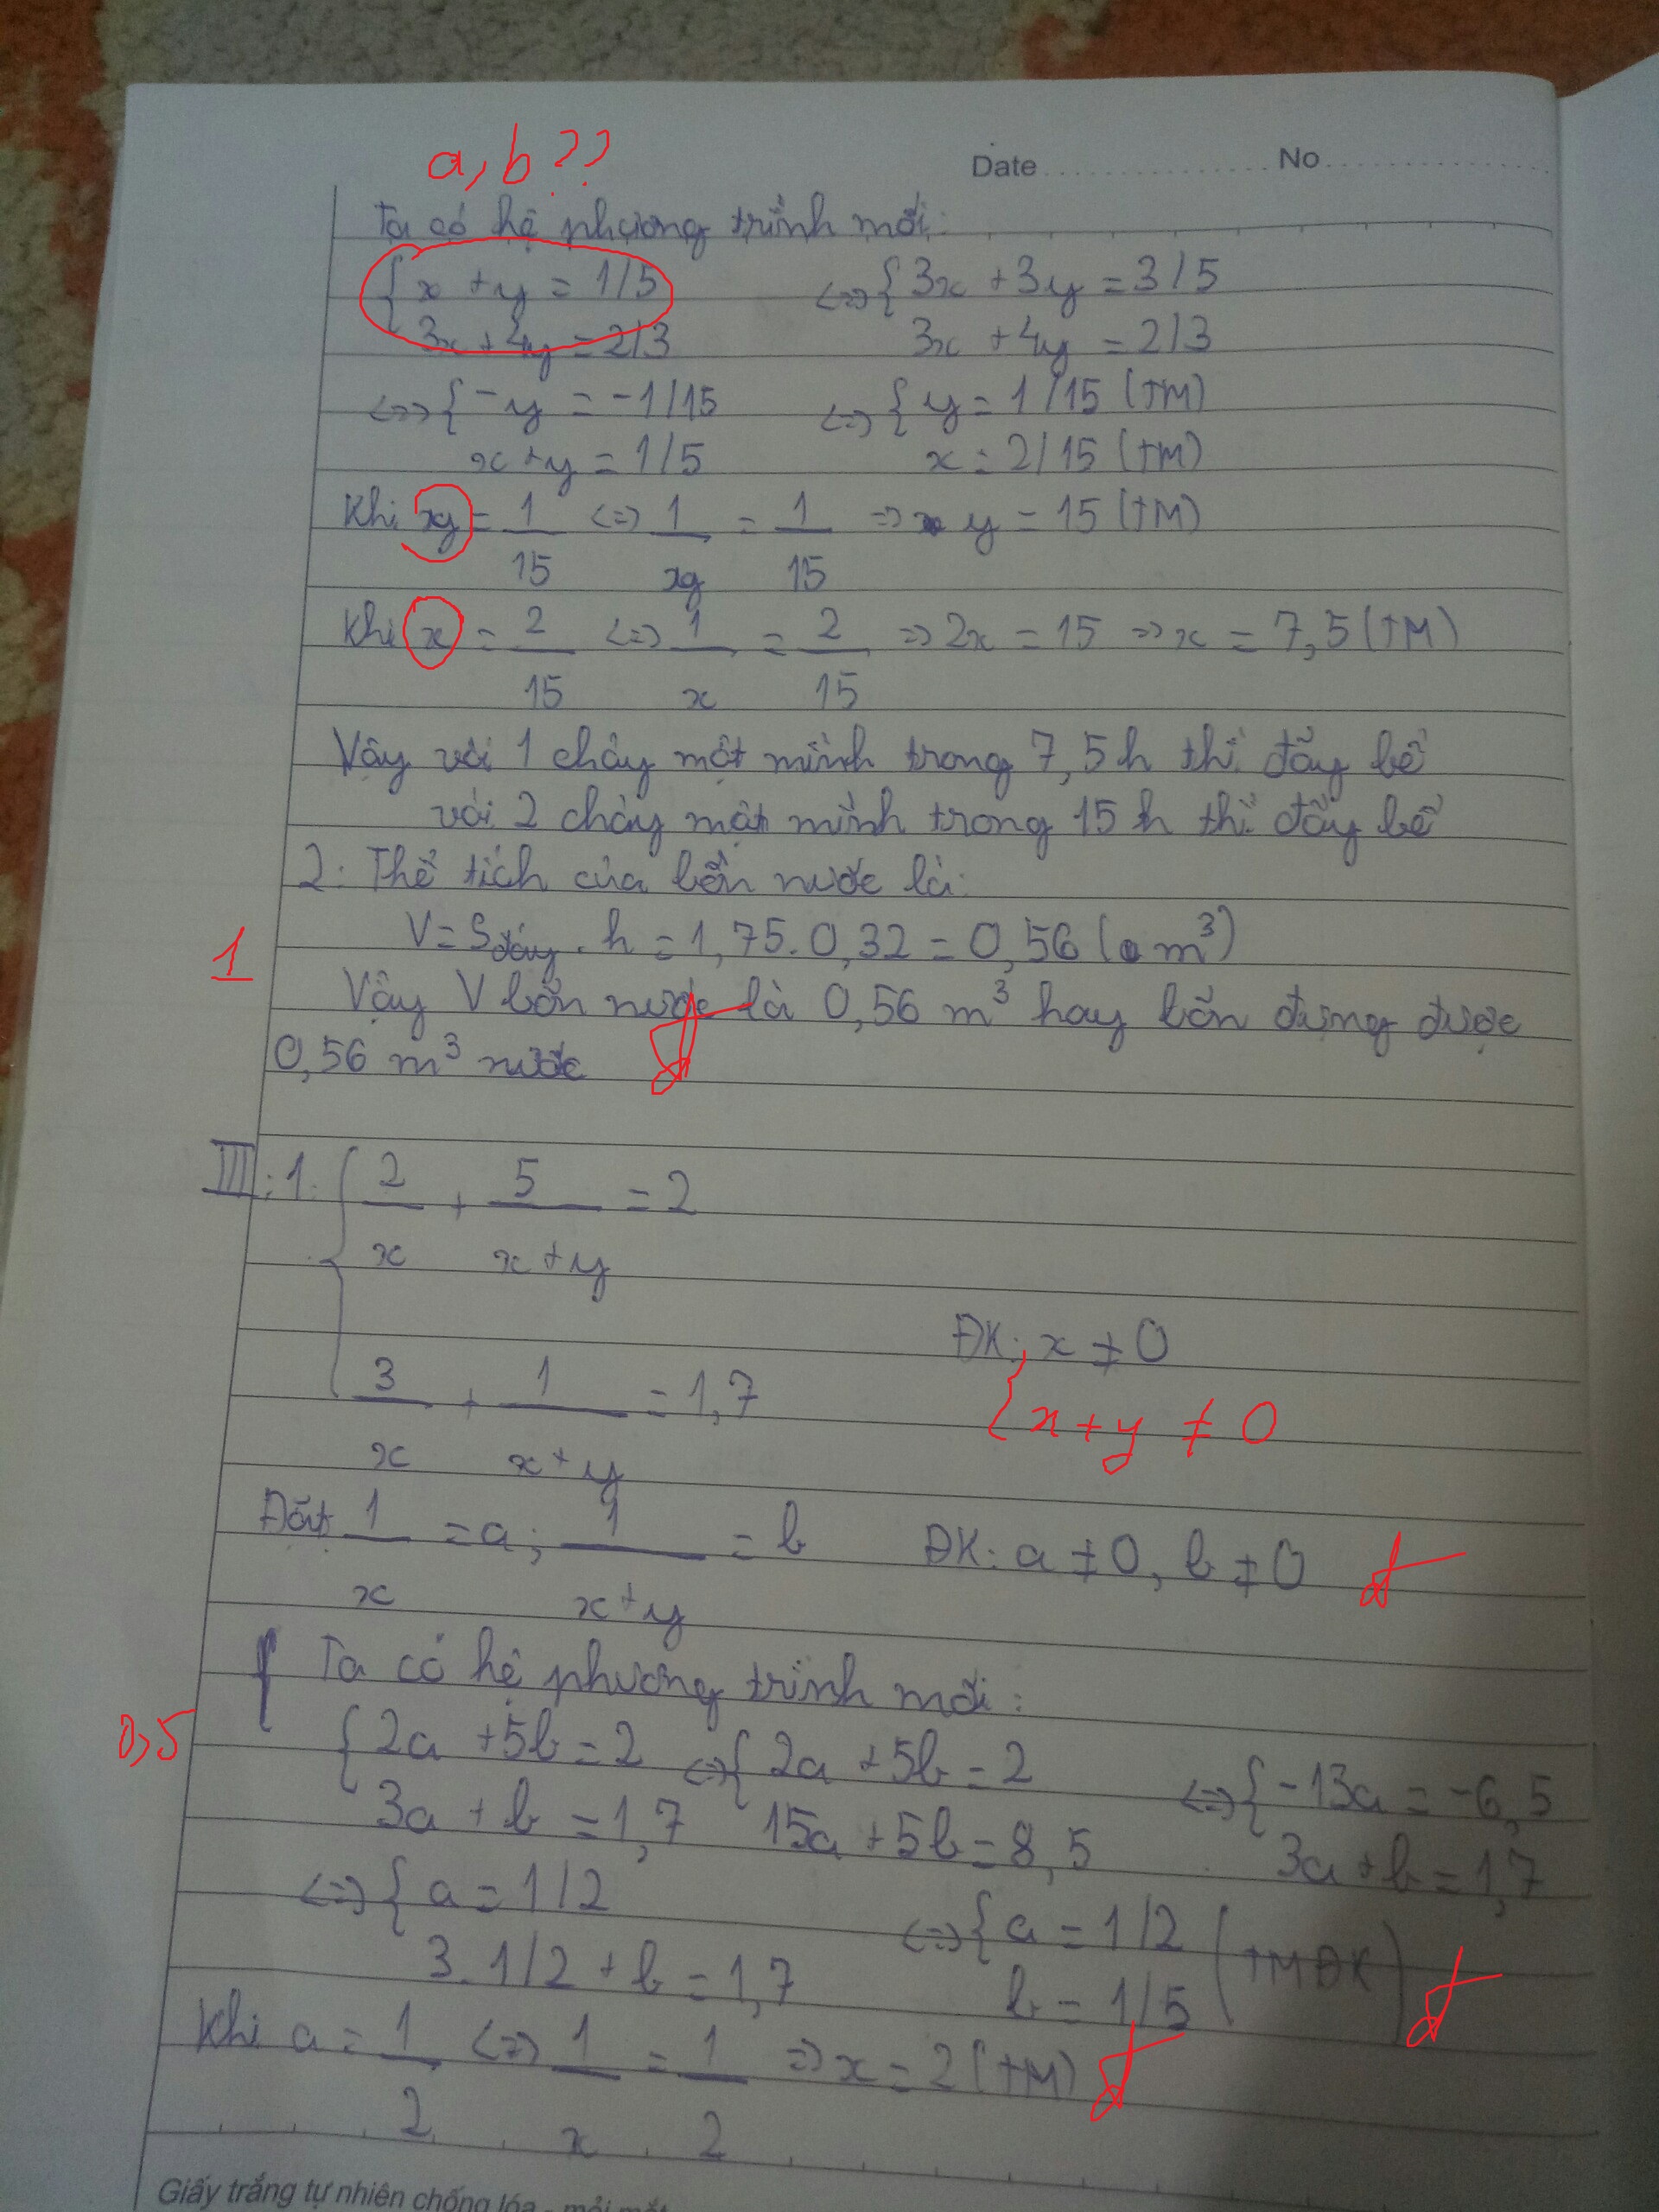 a, b ??
Date No
Ta có hệ phương trình mới:
{ x + y = 1/5 <=> { 3x + 3y = 3/5
3x + 4y = 2/3 3x + 4y = 2/3
<=> { -y = -1/15 <=> { y = 1/15 (TM)
x + y = 1/5 x = 2/15 (TM)
Khi y = 1/15 <=> 1/y = 1/15 => y = 15 (TM)
Khi x = 2/15 <=> 1/x = 2/15 => 2x = 15 => x = 7,5 (TM)
Vậy vòi 1 chảy một mình trong 7,5h thì đầy bể
vòi 2 chảy một mình trong 15h thì đầy bể
2: Thể tích của bồn nước là:
V = Sđáy . h = 1,75 . 0,32 = 0,56 (m³)
1
Vậy V bồn nước là 0,56 m³ hay bồn đựng được
0,56 m³ nước
đ
III: 1. { 2/x + 5/(x+y) = 2
ĐK: x ≠ 0
3/x + 1/(x+y) = 1,7
{ x + y ≠ 0
Đặt 1/x = a; 1/(x+y) = b ĐK: a ≠ 0, b ≠ 0 đ
Ta có hệ phương trình mới:
0,5
{ 2a + 5b = 2 <=> { 2a + 5b = 2 <=> { -13a = -6,5
3a + b = 1,7 15a + 5b = 8,5 3a + b = 1,7
<=> { a = 1/2 <=> { a = 1/2 (TMĐK) đ
3. 1/2 + b = 1,7 b = 1/5
Khi a = 1/2 <=> 1/x = 1/2 => x = 2 (TM) đ
Giấy trắng tự nhiên chống lóa - mỏi mắt